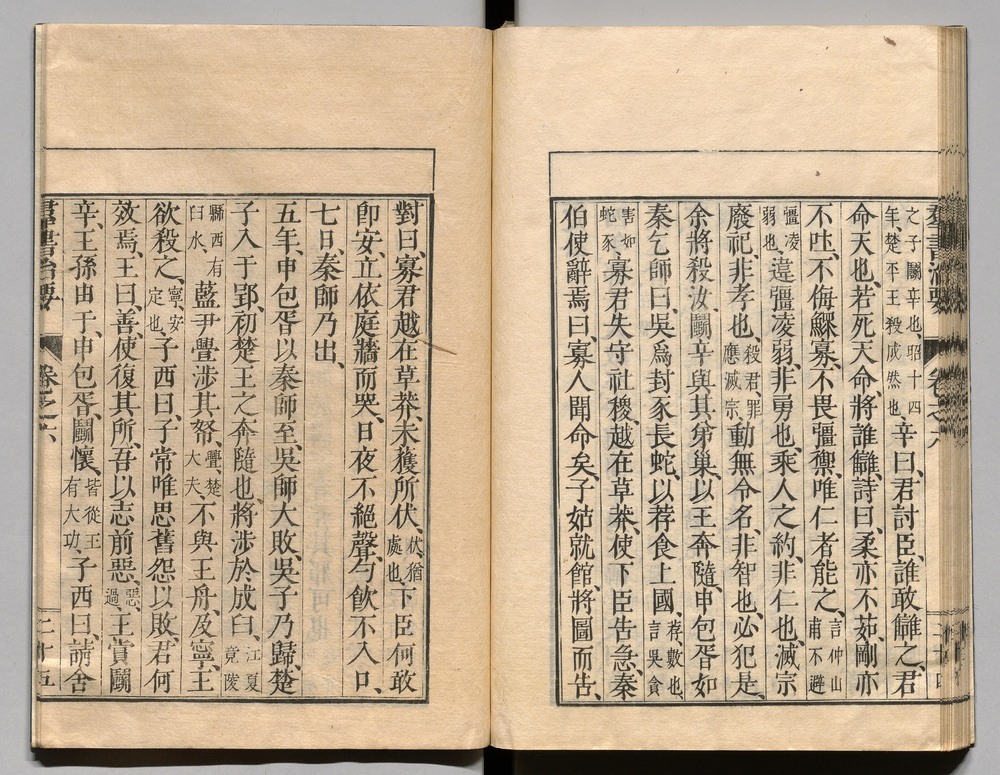 群書治要 卷之六 二十四
之子鬭辛也昭十四
年楚平王殺成然也、辛曰、君討臣、誰敢讎之、君
命天也、若死天命、將誰讎、詩曰、柔亦不茹、剛亦
不吐、不侮鰥寡、不畏彊禦、唯仁者能之、言仲山
甫不避
彊凌
弱也、違彊凌弱、非勇也、乘人之約、非仁也、滅宗
廢祀、非孝也、殺君罪
應滅宗、動無令名、非智也、必犯是、
余將殺汝、鬭辛與其弟巢、以王奔隨、申包胥如
秦乞師曰、吳爲封豕長蛇、以荐食上國、荐、數也、
言吳貪
害如
蛇豕、寡君失守社稷、越在草莽、使下臣告急、秦
伯使辭焉、曰、寡人聞命矣、子姑就館、將圖而告、
對曰、寡君越在草莽、未獲所伏、伏、猶
處也、下臣何敢
卽安、立依庭牆而哭、日夜不絕聲、勺飮不入口、
七日、秦師乃出、
五年、申包胥以秦師至、吳師大敗、吳子乃歸、楚
子入于郢、初楚王之奔隨也、將涉於成臼、江夏
竟陵
縣西有
臼水、藍尹亹涉其帑、亹、楚
大夫、不與王舟、及寧、王
欲殺之、寧、安
定也、子西曰、子常唯思舊怨以敗、君何
效焉、王曰、善、使復其所、吾以志前惡、惡、
過、王賞鬭
辛、王孫由于、申包胥、鬭懷、皆從王
有大功、子西曰、請舍
群書治要 卷之六 二十五